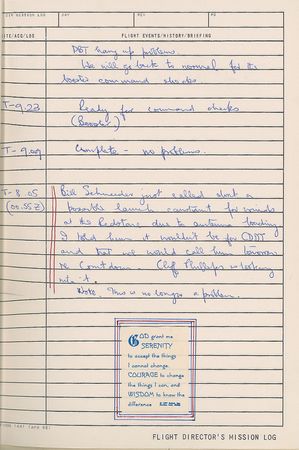 DAY
PET
MO
FLIGHT EVENTS/HISTORY/BRIEFING
DBT hang up problems.
We will go back to normal for the
booster command checks
T-9.23
Ready for command checks
(Booster)
T-9.09
Complete - no problems.
T-8.05
Bill Schneider just called about a
(00.55Z)
possible launch constraint for winds
at the Redstone due to antenna
I told him it wouldn't be for CDDT
and that we would call him tomorrow
re Countdown. Cliff Phillips is looking
into it.
Note. This is no longer a problem.
GOD grant me
SERENITY
to accept the things
I cannot change
COURAGE to change
the things I can, and
WISDOM to know the
difference
FLIGHT DIRECTOR'S MISSION LOG